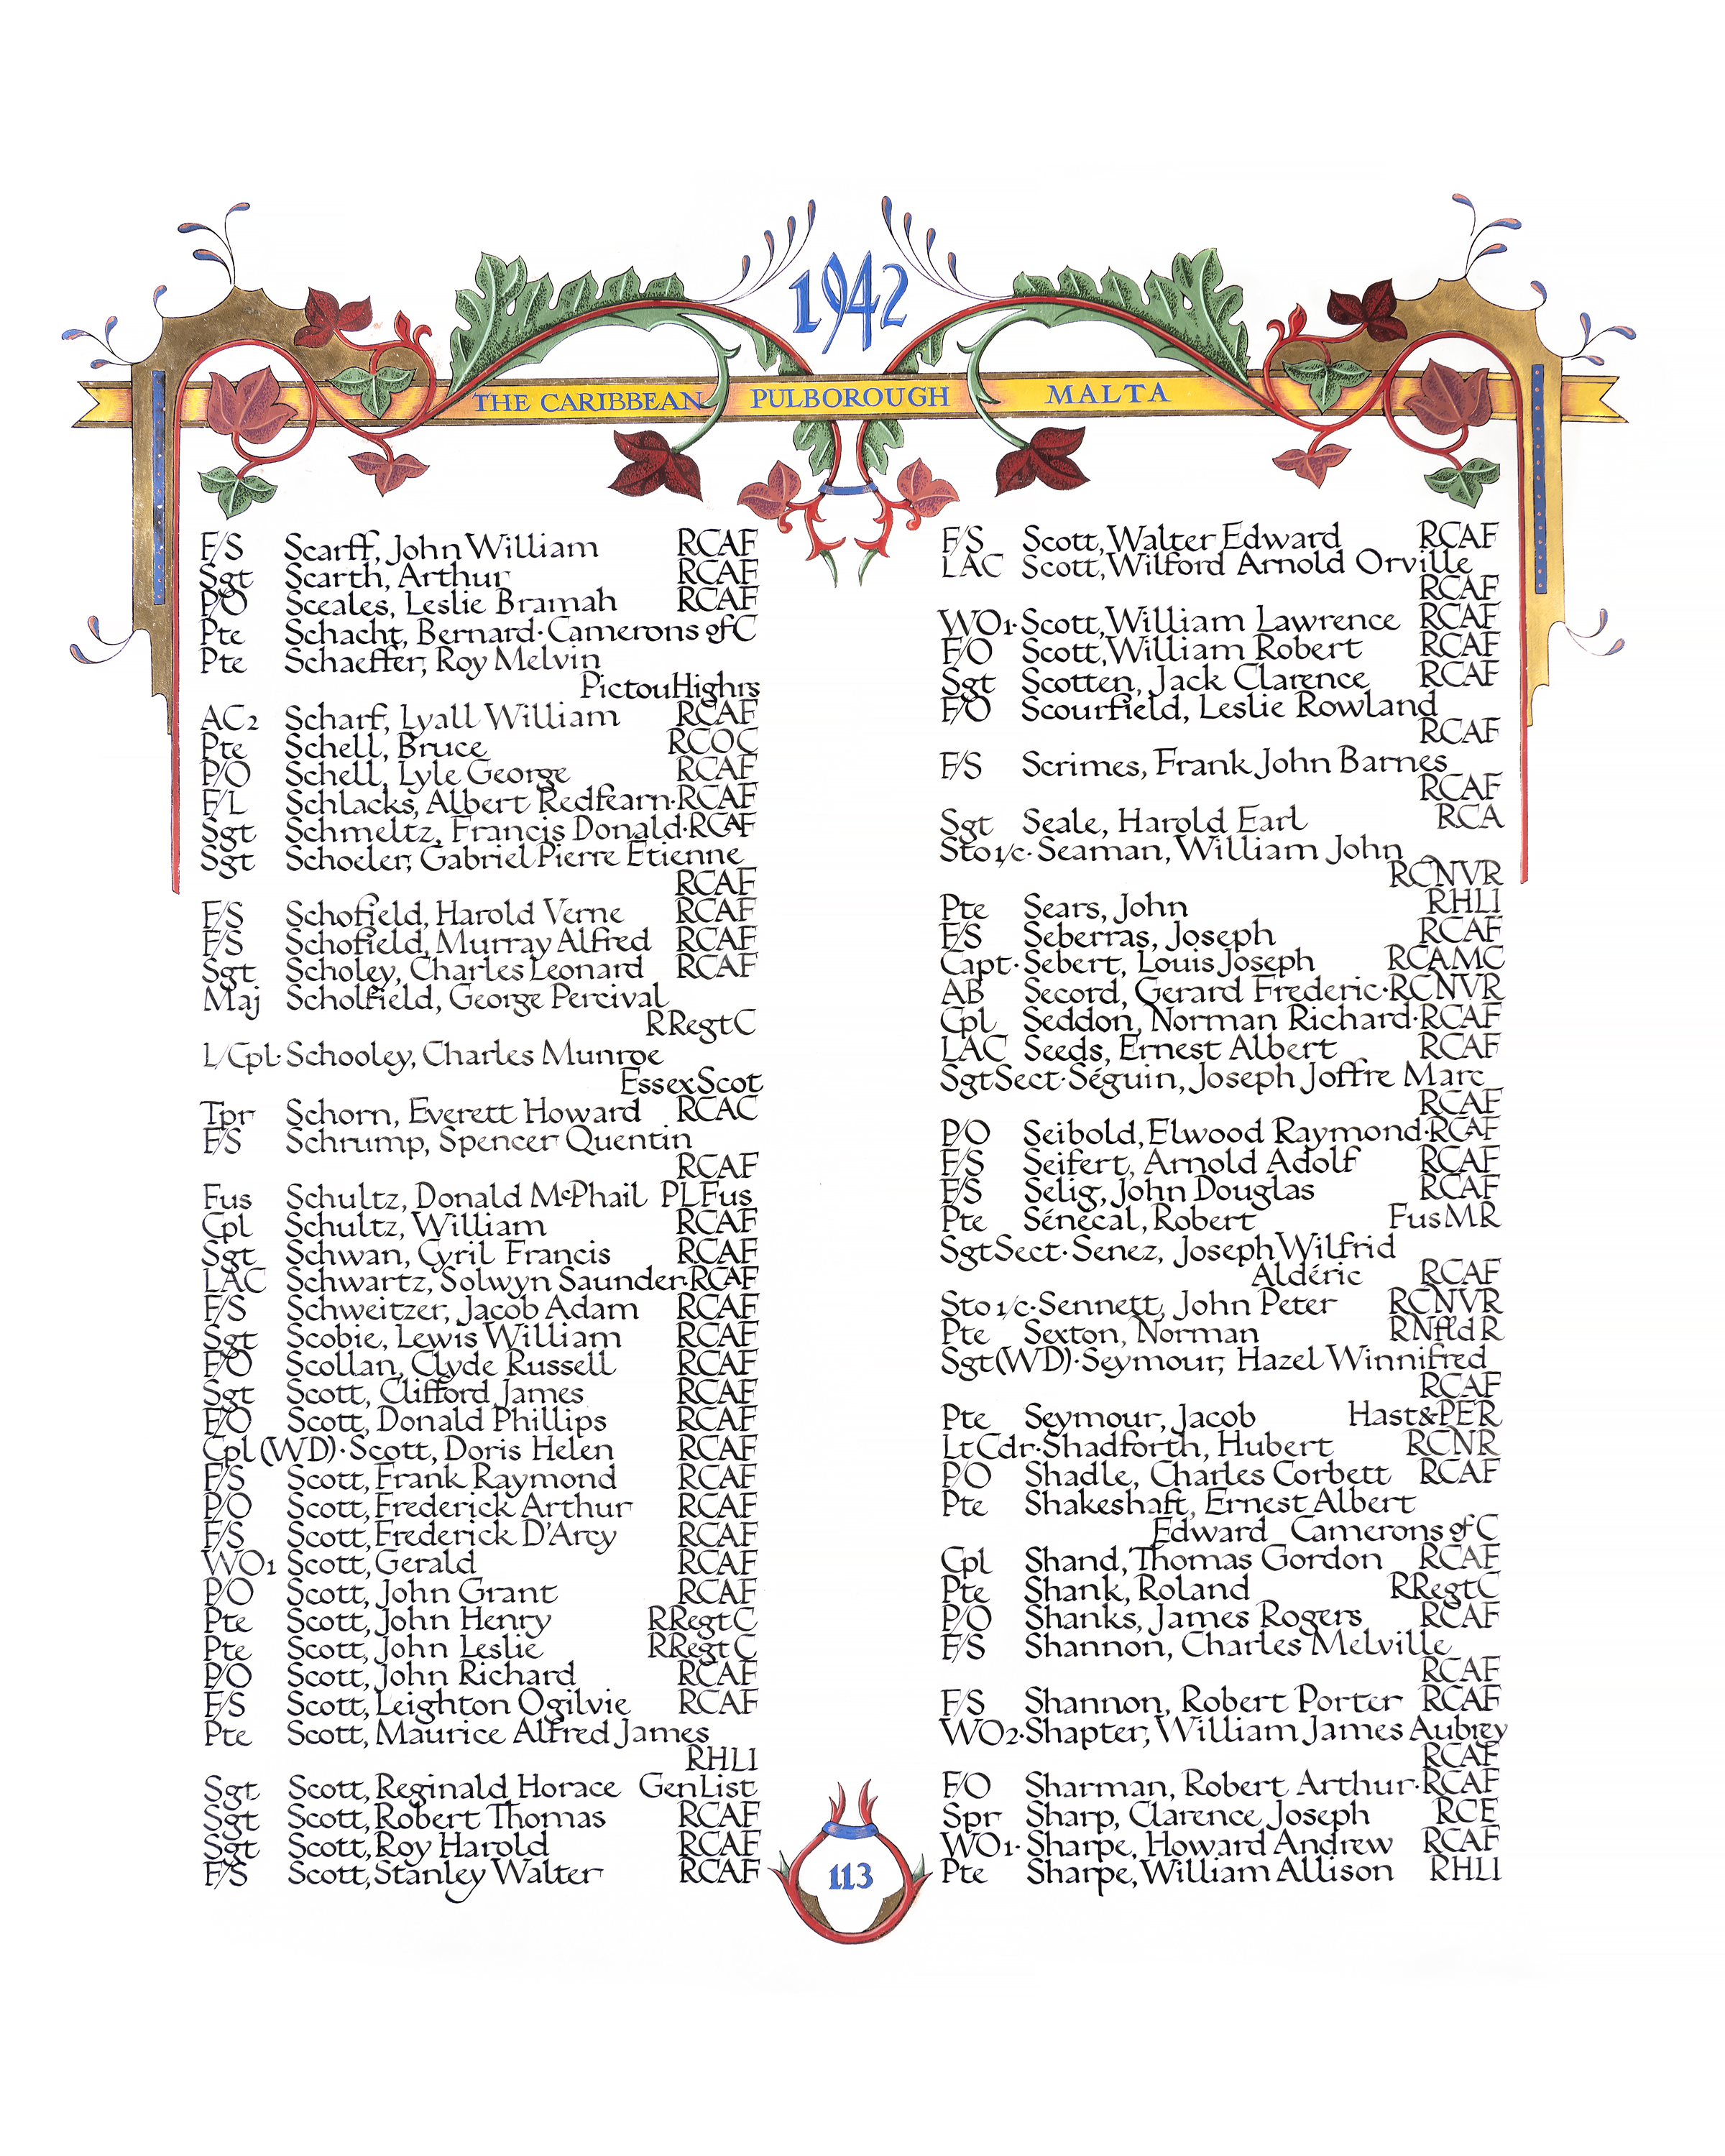 1942
THE CARIBBEAN PULBOROUGH MALTA
F/S Scarff, John William RCAF
Sgt Scarth, Arthur RCAF
P/O Sceales, Leslie Bramah RCAF
Pte Schacht, Bernard·Camerons of C
Pte Schaeffer, Roy Melvin
PictouHighrs
AC2 Scharf, Lyall William RCAF
Pte Schell, Bruce RCOC
P/O Schell, Lyle George RCAF
F/L Schlacks, Albert Redfearn·RCAF
Sgt Schmeltz, Francis Donald·RCAF
Sgt Schoeler, Gabriel Pierre Etienne
RCAF
F/S Schofield, Harold Verne RCAF
F/S Schofield, Murray Alfred RCAF
Sgt Scholey, Charles Leonard RCAF
Maj Scholfield, George Percival
RRegtC
L/Cpl·Schooley, Charles Munroe
EssexScot
Tpr Schorn, Everett Howard RCAC
F/S Schrump, Spencer Quentin
RCAF
Fus Schultz, Donald McPhail PLFus
Cpl Schultz, William RCAF
Sgt Schwan, Cyril Francis RCAF
LAC Schwartz, Solwyn Saunder·RCAF
F/S Schweitzer, Jacob Adam RCAF
Sgt Scobie, Lewis William RCAF
F/O Scollan, Clyde Russell RCAF
Sgt Scott, Clifford James RCAF
F/O Scott, Donald Phillips RCAF
Cpl (WD)·Scott, Doris Helen RCAF
F/S Scott, Frank Raymond RCAF
P/O Scott, Frederick Arthur RCAF
F/S Scott, Frederick D'Arcy RCAF
WO1 Scott, Gerald RCAF
P/O Scott, John Grant RCAF
Pte Scott, John Henry RRegtC
Pte Scott, John Leslie RRegtC
P/O Scott, John Richard RCAF
F/S Scott, Leighton Ogilvie RCAF
Pte Scott, Maurice Alfred James
RHLI
Sgt Scott, Reginald Horace GenList
Sgt Scott, Robert Thomas RCAF
Sgt Scott, Roy Harold RCAF
F/S Scott, Stanley Walter RCAF
F/S Scott, Walter Edward RCAF
LAC Scott, Wilford Arnold Orville
RCAF
WO1·Scott, William Lawrence RCAF
F/O Scott, William Robert RCAF
Sgt Scotten, Jack Clarence RCAF
F/O Scourfield, Leslie Rowland
RCAF
F/S Scrimes, Frank John Barnes
RCAF
Sgt Seale, Harold Earl RCA
Sto1/c·Seaman, William John
RCNVR
Pte Sears, John RHLI
F/S Seberras, Joseph RCAF
Capt·Sebert, Louis Joseph RCAMC
AB Secord, Gerard Frederic·RCNVR
Cpl Seddon, Norman Richard·RCAF
LAC Seeds, Ernest Albert RCAF
SgtSect·Séguin, Joseph Joffre Marc
RCAF
P/O Seibold, Elwood Raymond·RCAF
F/S Seifert, Arnold Adolf RCAF
F/S Selig, John Douglas RCAF
Pte Sénécal, Robert FusMR
SgtSect·Senez, Joseph Wilfrid
Aldéric RCAF
Sto1/c·Sennett, John Peter RCNVR
Pte Sexton, Norman RNfldR
Sgt(WD)·Seymour, Hazel Winnifred
RCAF
Pte Seymour, Jacob Hast&PER
LtCdr·Shadforth, Hubert RCNR
P/O Shadle, Charles Corbett RCAF
Pte Shakeshaft, Ernest Albert
Edward Camerons of C
Cpl Shand, Thomas Gordon RCAF
Pte Shank, Roland RRegtC
P/O Shanks, James Rogers RCAF
F/S Shannon, Charles Melville
RCAF
F/S Shannon, Robert Porter RCAF
WO2·Shapter, William James Aubrey
RCAF
F/O Sharman, Robert Arthur·RCAF
Spr Sharp, Clarence Joseph RCE
WO1·Sharpe, Howard Andrew RCAF
Pte Sharpe, William Allison RHLI
113